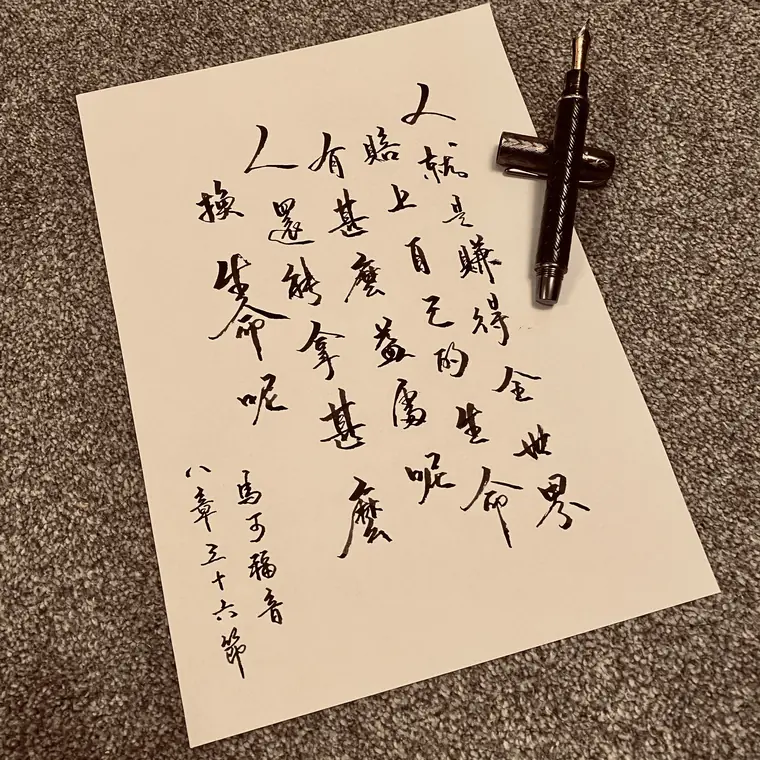 人就是賺得全世界
賠上自己的生命
有甚麼益處呢
人還能拿甚麼
換生命呢
馬可福音
八章三十六節